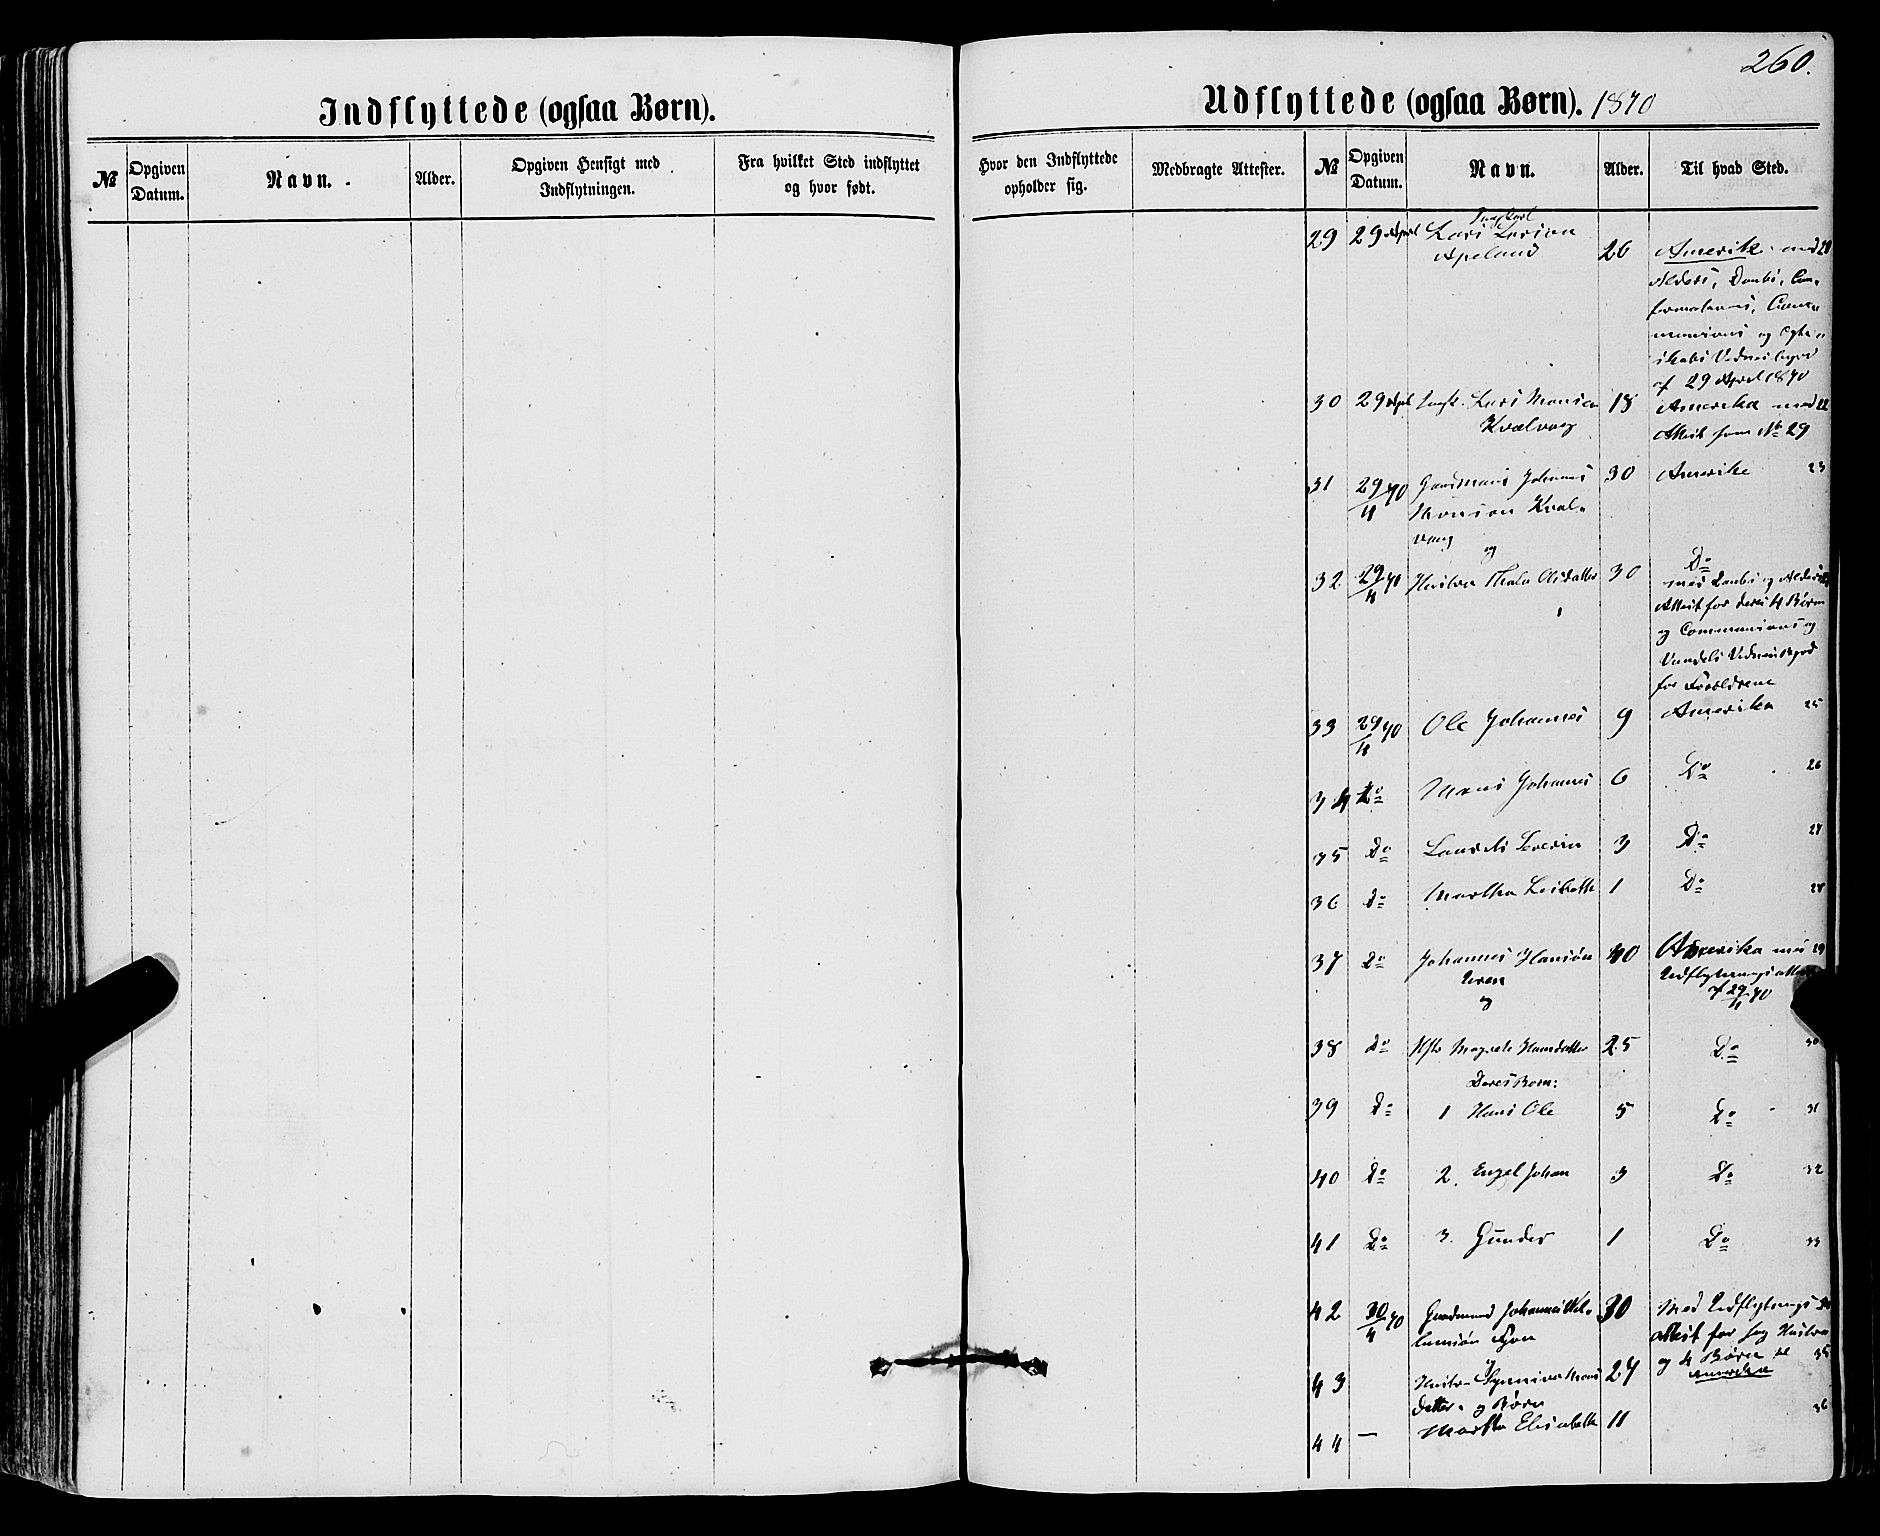 260.
Indflyttede (ogsaa Børn).
№
Opgiven Datum.
Navn.
Alder.
Opgiven Hensigt med Indflytningen.
Fra hvilket Sted indflyttet og hvor født.
Udflyttede (ogsaa Børn). 1870
Hvor den Indflyttede opholder sig.
Medbragte Attester.
№
Opgiven Datum.
Navn.
Alder.
Til hvad Sted.
29 29 April Lars Larsen 26 Amerika med
Apeland
og
af 29 April 1870
30 29 April Lars Monsen 18 Amerika med 22
Kvalvaag
Attest som № 29
31 29/4 70 Gaardmand Johannes 30 Amerika 23
Monsen Kval-
vaag
og
32. 29/4 70 Hustru Thala Olsdatter 30 Do
med Daabs og Alders
Attest for deres 4 Børn
og Communions og
Vandels Vidnesbyrd
for Forældrene
33 29/4 70 Ole Johannes 9 Amerika 25
34 Do Mons Johannes 6 Do 26
35 Do Laurits Severin 3 Do 27
36 Do Martha Lisbeth 1 Do 28
37 Do Johannes Hansøn 40 Amerika med 29
og
Udflytningsattest
af 29/4 70
38 Do Hstr Magrete Hansdatter 25 Do 30
Deres Børn:
39 Do 1 Hans Ole 5 Do 31
40 Do 2. Engel Johan 3 Do 32
41 Do 3. Gunder 1 Do 33
42 30/4 70 Gaardmand Johannes 30 Med Udflytnings
attest for sig Hustru
og 4 Børn til 35
Amerika
43 Hustru Synniva Mons 27
datter og Børn
44 — Martha Elisabeth 11 36